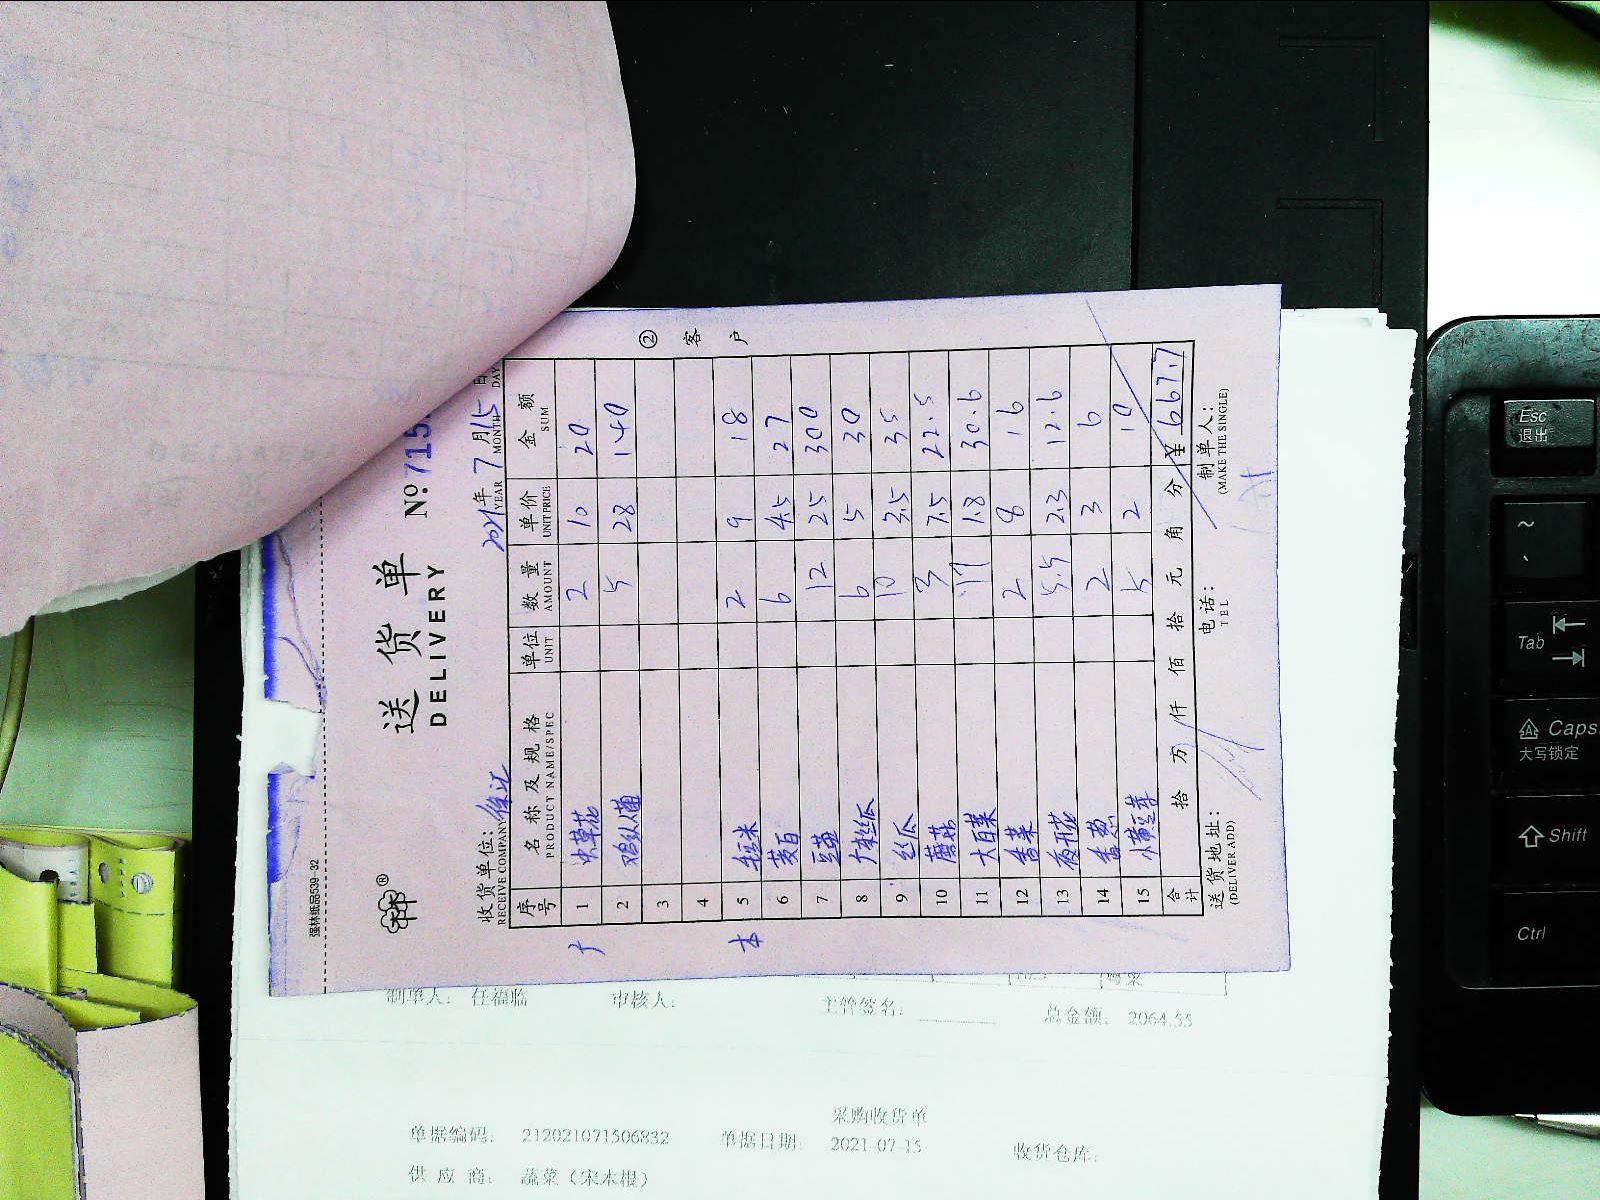 强林纸品539-32
送货单
DELIVERY
№ 715
收货单位:
RECEIVE COMPANY
2021年 7月 15日
YEAR MONTH DAY
序号 名称及规格 单位 数量 单价 金额
PRODUCT NAME/SPEC UNIT AMOUNT UNIT PRICE SUM
1 虫草花 2 10 20
2 鸡纵菌 5 28 140
3
4
5 2 9 18
6 茭白 6 4.5 27
7 12 25 300
8 广东丝瓜 6 5 30
9 丝瓜 10 3.5 35
10 蘑菇 3 7.5 22.5
11 大白菜 17 1.8 30.6
12 香菜 2 8 16
13 5.5 2.3 12.6
14 香葱 2 3 6
15 小黄豆芽 5 2 10
合计 拾 万 仟 佰 拾 元 角 分 ¥ 667.7
送货地址: 电话: 制单人:
(DELIVER ADD) TEL (MAKE THE SINGLE)
② 客户
制单人: 任福临 审核人: 主管签名: 总金额: 2064.55
采购收货单
单据编码: 212021071506832 单据日期: 2021-07-15 收货仓库:
供应商: 蔬菜（宋木根）
Esc
退出
~
Tab
Caps
大写锁定
Shift
Ctrl